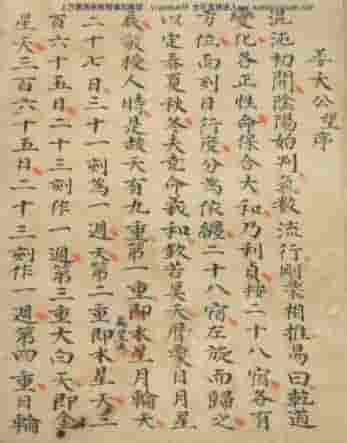 大公望序
混沌初開陰陽始判氣數流行剛柔相推易曰乾道
變化各正性命保合大和乃利貞按二十八宿各有
方位而列日行度分為依纏二十八宿左旋而歸之
以定春夏秋冬夫堯命羲和欽若昊天曆象日月星
辰敬授人時是故天有九重第一重即本星月輪天
二十七日三十一刻為一週天第二重即木星天三
百六十五日二十三刻作一週第三重大白天即金
星天三百六十五日二十三刻作一週第四重日輪